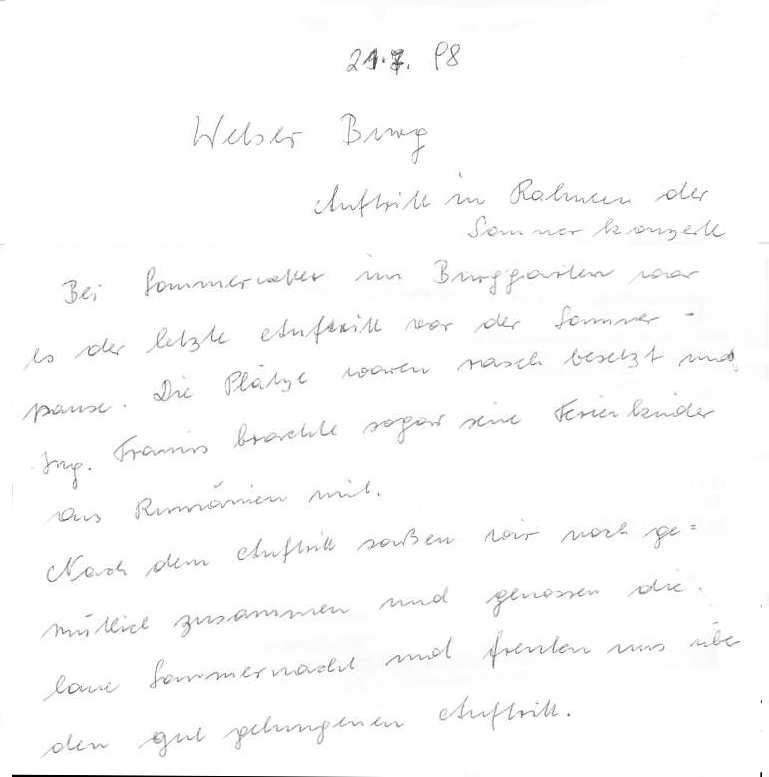 21.7. 98
Welser Burg
Auftritt in Rahmen der
Sommerkonzerte
Bei Sommerwetter im Burggarten war
es der letzte Auftritt vor der Sommer-
pause. Die Plätze waren rasch besetzt und
Ing. brachte sogar seine Ferienkinder
aus Rumänien mit.
Nach dem Auftritt saßen wir noch ge=
mütlich zusammen und genossen die
laue Sommernacht und freuten uns übe
den gut gelungenen Auftritt.